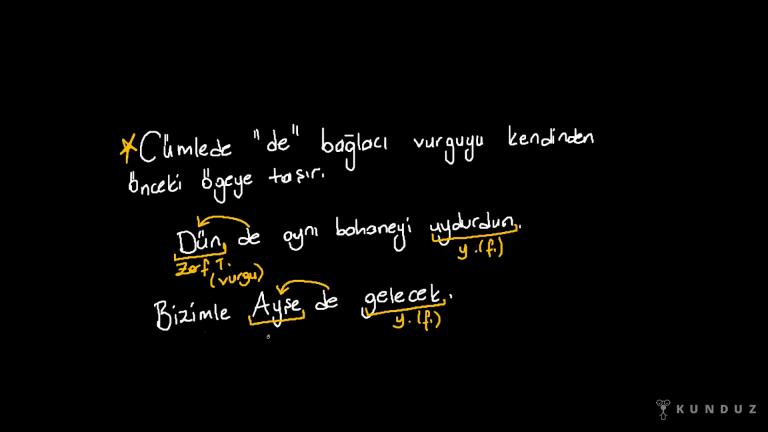 *Cümlede "de" bağlacı vurguyu kendinden
önceki ögeye taşır.
Dün de aynı bahaneyi uydurdun.
Zarf T. y.(f.)
(vurgu)
Bizimle Ayşe de gelecek.
y.(f.)
KUNDUZ